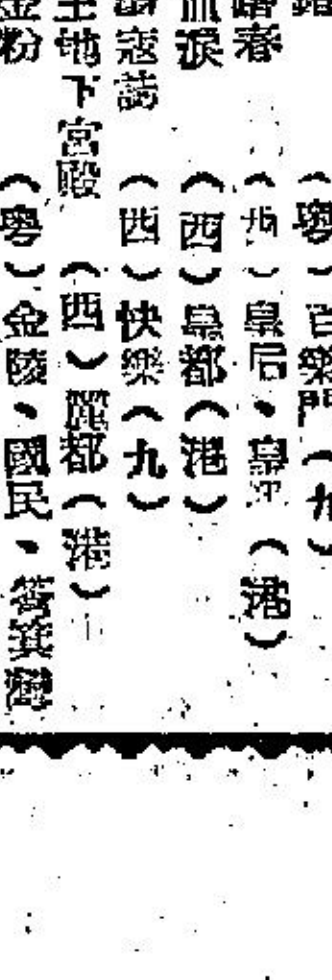 （粵）百樂門（九
春（西）皇后、皇（港）
血淚（西）皇都（港）
寇誌（西）快樂（九）
土地下宮殿（西）麗都（港）
金粉（粵）金陵、國民、筲箕灣